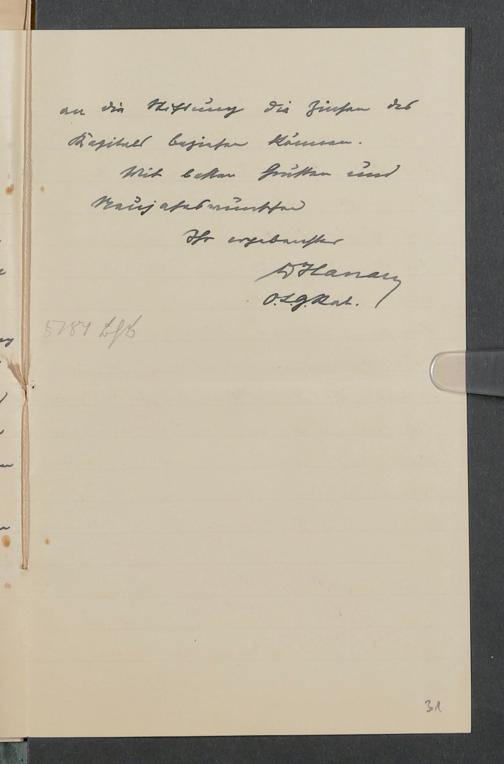 an die Stiftung die Zinsen des
Kapitals beziehen können.
Mit besten Grüßen und
Neujahrswünschen
Ihr ergebenster
Hanau
O.L.G.Rat.
5781
31